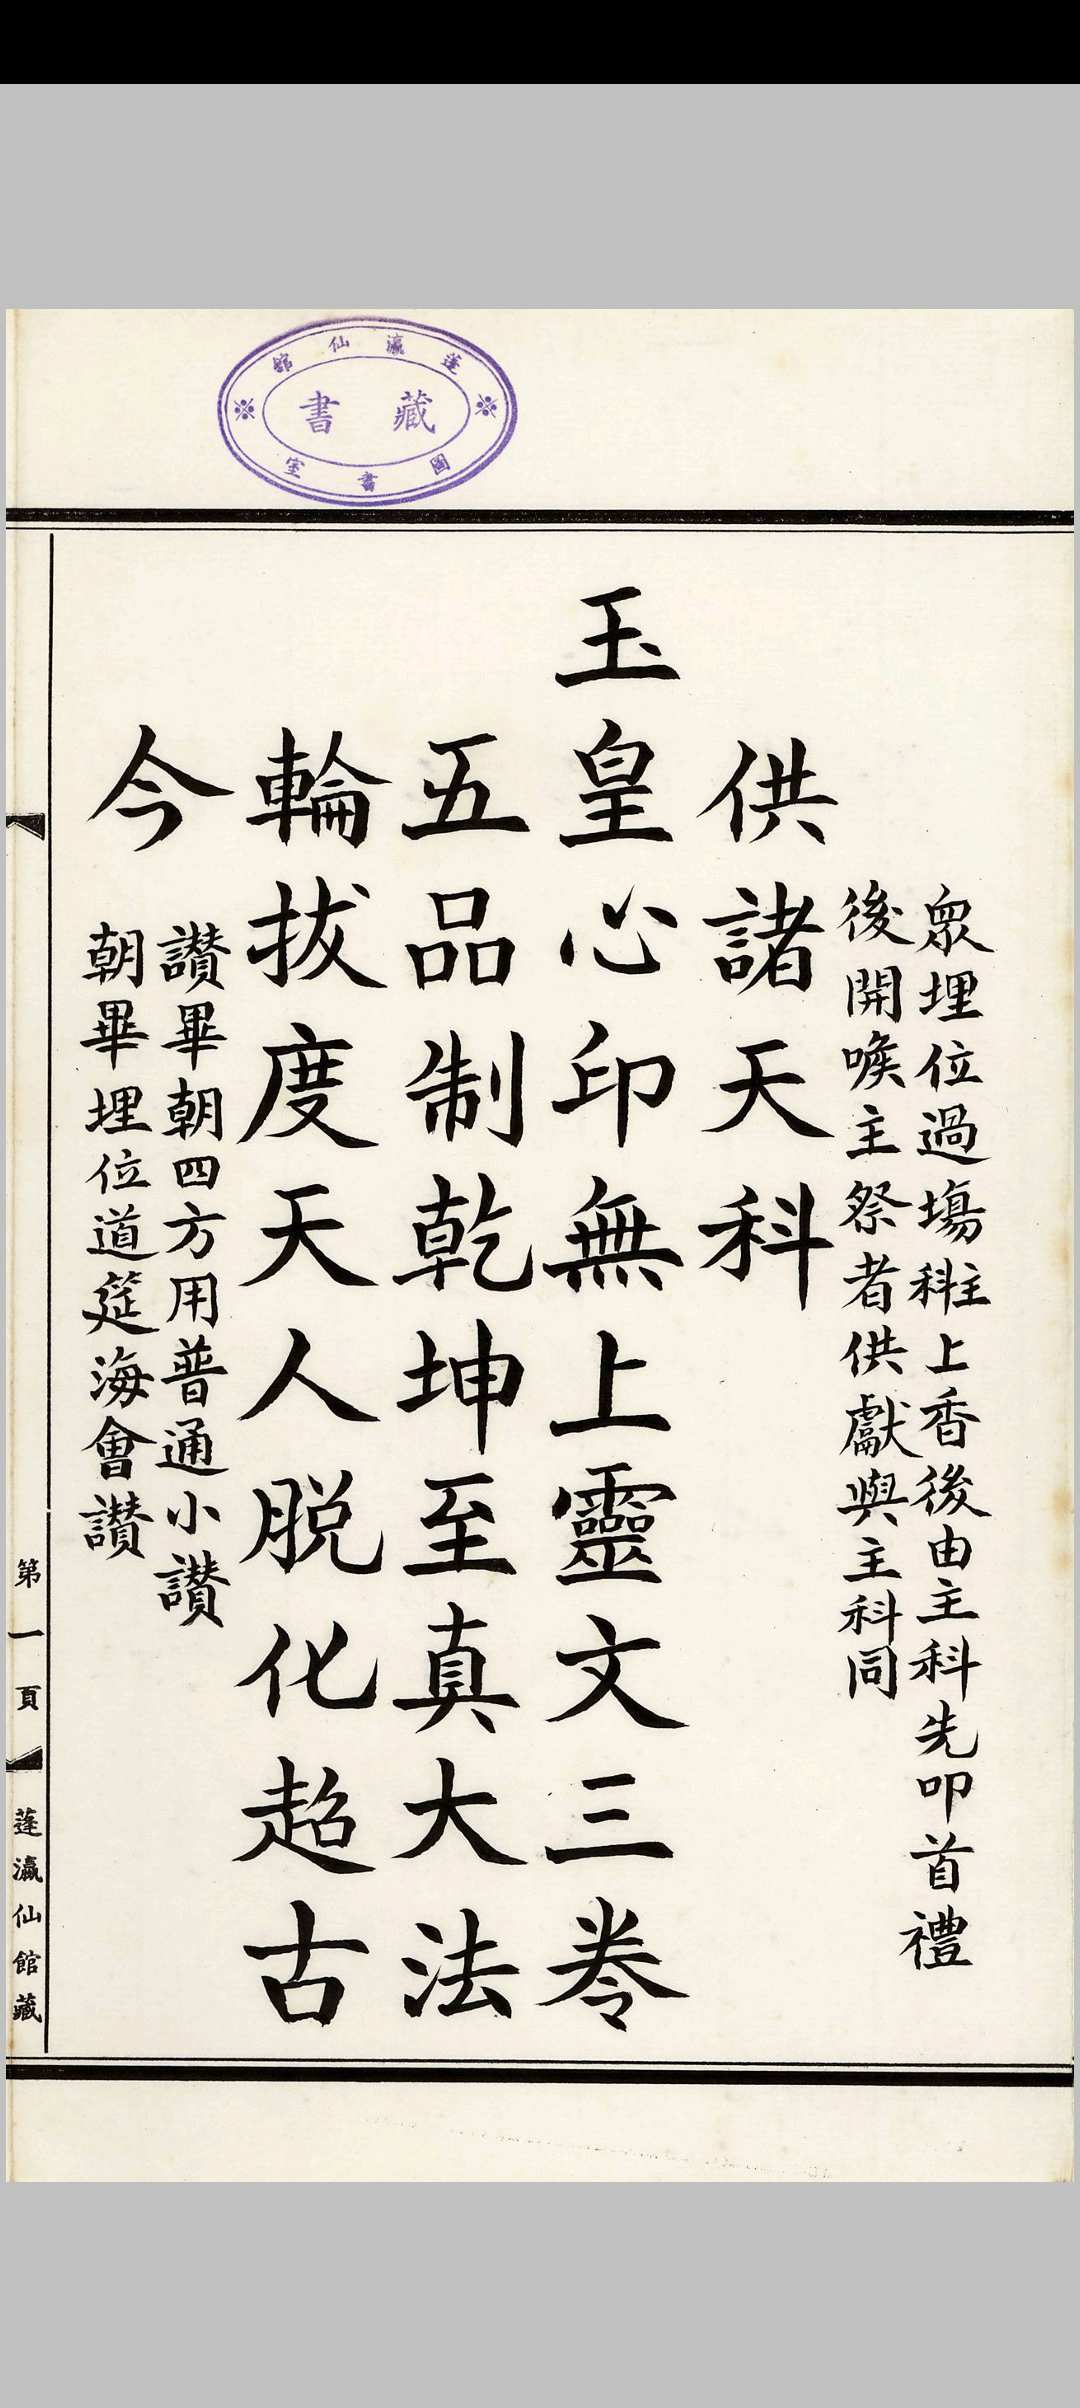 蓬瀛仙館
藏書
圖書室
眾埋位過場主科上香後由主科先叩首禮
後開喉主祭者供獻與主科同
供諸天科
玉皇心印無上靈文三卷
五品制乾坤至真大法
輪拔度天人脱化超古
今
讚畢朝四方用普通小讚
朝畢埋位道筵海會讚
第一頁
蓬瀛仙館藏